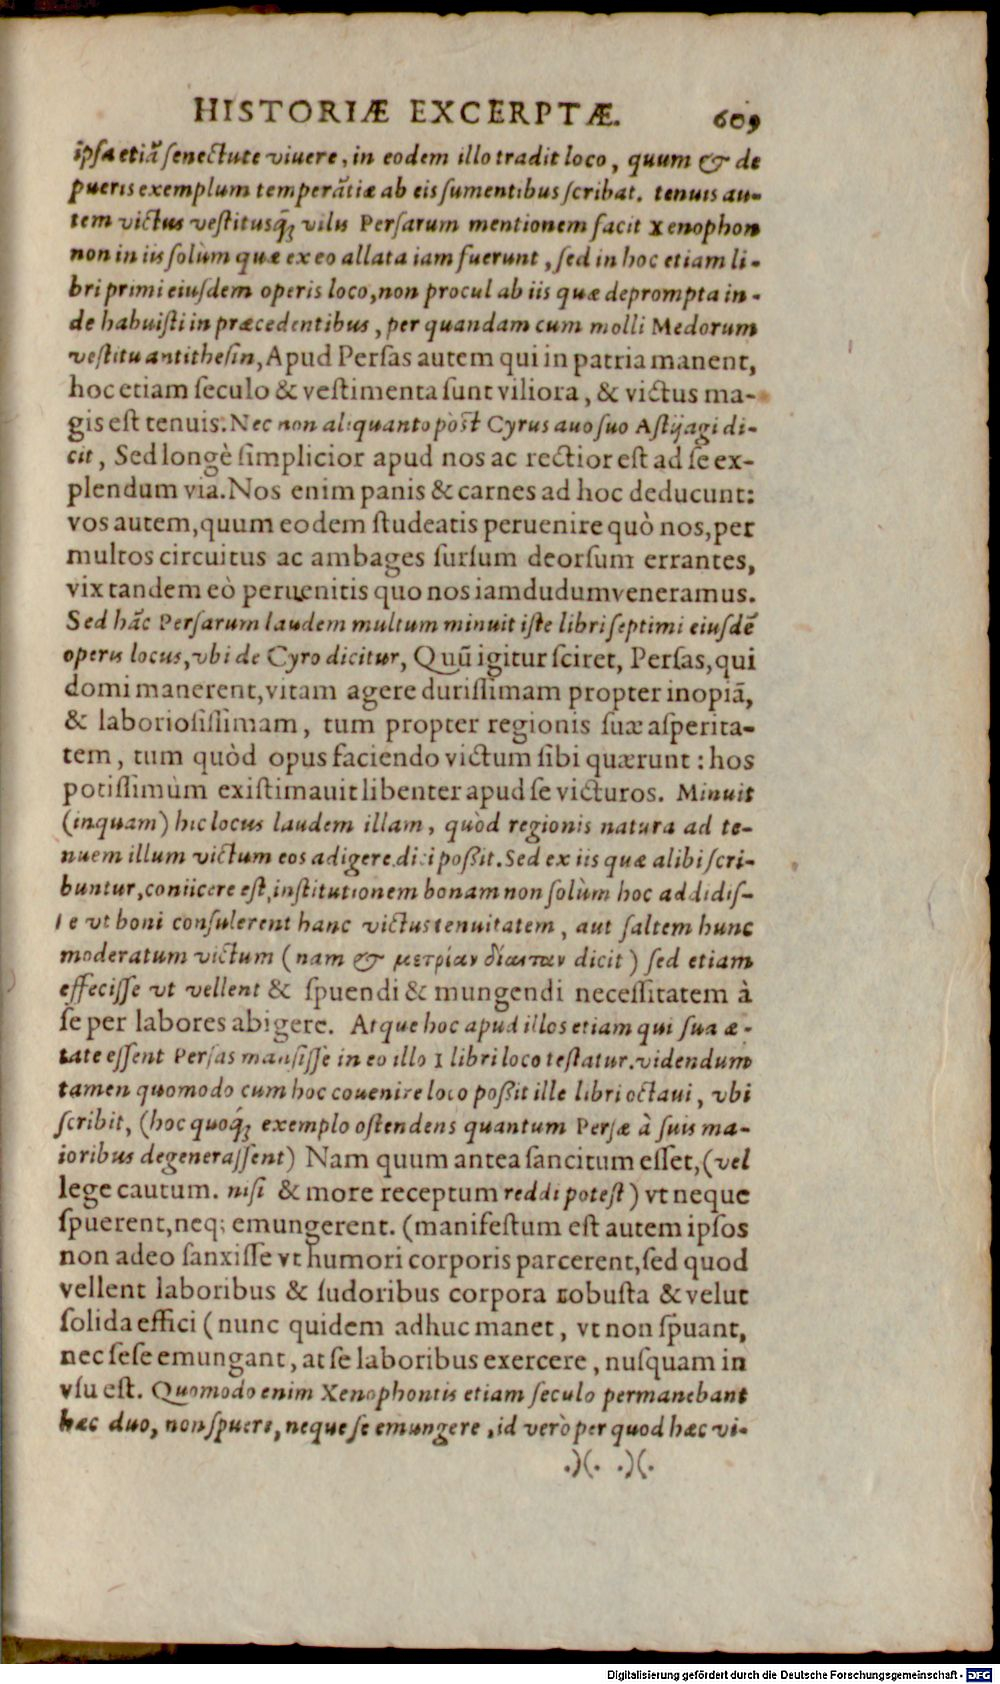 HISTORIÆ EXCERPTÆ. 609
ipsa etiã senectute viuere, in eodem illo tradit loco, quum & de
pueris exemplum temperãtiæ ab eis sumentibus scribat. tenuis au-
tem victus vestitusq́; vilis Persarum mentionem facit Xenophon
non in iis solùm quæ ex eo allata iam fuerunt, sed in hoc etiam li-
bri primi eiusdem operis loco, non procul ab iis quæ deprompta in-
de habuisti in præcedentibus, per quandam cum molli Medorum
vestitu antithesin, Apud Persas autem qui in patria manent,
hoc etiam seculo & vestimenta sunt viliora, & victus ma-
gis est tenuis. Nec non aliquanto pòst Cyrus auo suo Astyagi di-
cit, Sed longè simplicior apud nos ac rectior est ad se ex-
plendum via. Nos enim panis & carnes ad hoc deducunt:
vos autem, quum eodem studeatis peruenire quò nos, per
multos circuitus ac ambages sursum deorsum errantes,
vix tandem eò peruenitis quo nos iamdudum veneramus.
Sed hãc Persarum laudem multum minuit iste libri septimi eiusdẽ
operis locus, vbi de Cyro dicitur, Quũ igitur sciret, Persas, qui
domi manerent, vitam agere durissimam propter inopiã,
& laboriosissimam, tum propter regionis suæ asperita-
tem, tum quòd opus faciendo victum sibi quærunt: hos
potissimùm existimauit libenter apud se victuros. Minuit
(inquam) hic locus laudem illam, quòd regionis natura ad te-
nuem illum victum eos adigere dici possit. Sed ex iis quæ alibi scri-
buntur, coniicere est, institutionem bonam non solùm hoc addidis-
se vt boni consulerent hanc victus tenuitatem, aut saltem hunc
moderatum victum (nam & μετρίαν δίαιταν dicit) sed etiam
effecisse vt vellent & spuendi & mungendi necessitatem à
se per labores abigere. Atque hoc apud illos etiam qui sua æ-
tate essent Persas mansisse in eo illo 1 libri loco testatur. videndum
tamen quomodo cum hoc couenire loco possit ille libri octaui, vbi
scribit, (hoc quoq́; exemplo ostendens quantum Persæ à suis ma-
ioribus degenerassent) Nam quum antea sancitum esset, (vel
lege cautum. nisi & more receptum reddi potest) vt neque
spuerent, neq; emungerent. (manifestum est autem ipsos
non adeo sanxisse vt humori corporis parcerent, sed quod
vellent laboribus & sudoribus corpora robusta & velut
solida effici (nunc quidem adhuc manet, vt non spuant,
nec sese emungant, at se laboribus exercere, nusquam in
vsu est. Quomodo enim Xenophontis etiam seculo permanebant
hæc duo, non spuere, neque se emungere, id verò per quod hæc vi-
.)(. .)(.
Digitalisierung gefördert durch die Deutsche Forschungsgemeinschaft - DFG